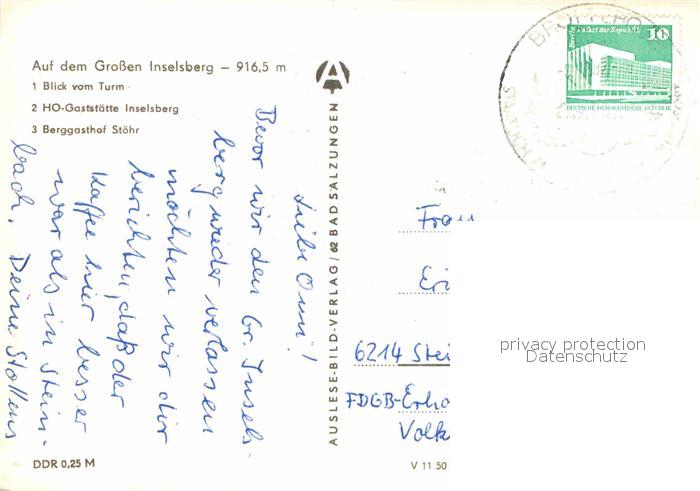 Auf dem Großen Inselsberg — 916,5 m
1 Blick vom Turm
2 HO-Gaststätte Inselsberg
3 Berggasthof Stöhr
Liebe Omi!
Bevor wir den Gr. Insels-
berg wieder verlassen
möchten wir dir
berichten, daß der
Kaffee hier besser
war als in Stein-
bach. Deine Stollens
DDR 0,25 M
AUSLESE-BILD-VERLAG / 62 BAD SALZUNGEN
V 11 50
Berlin Palast der Republik 10
DEUTSCHE DEMOKRATISCHE REPUBLIK
Frau
Eri
6214 Stei
FDGB-Erho
Volk
privacy protection
Datenschutz